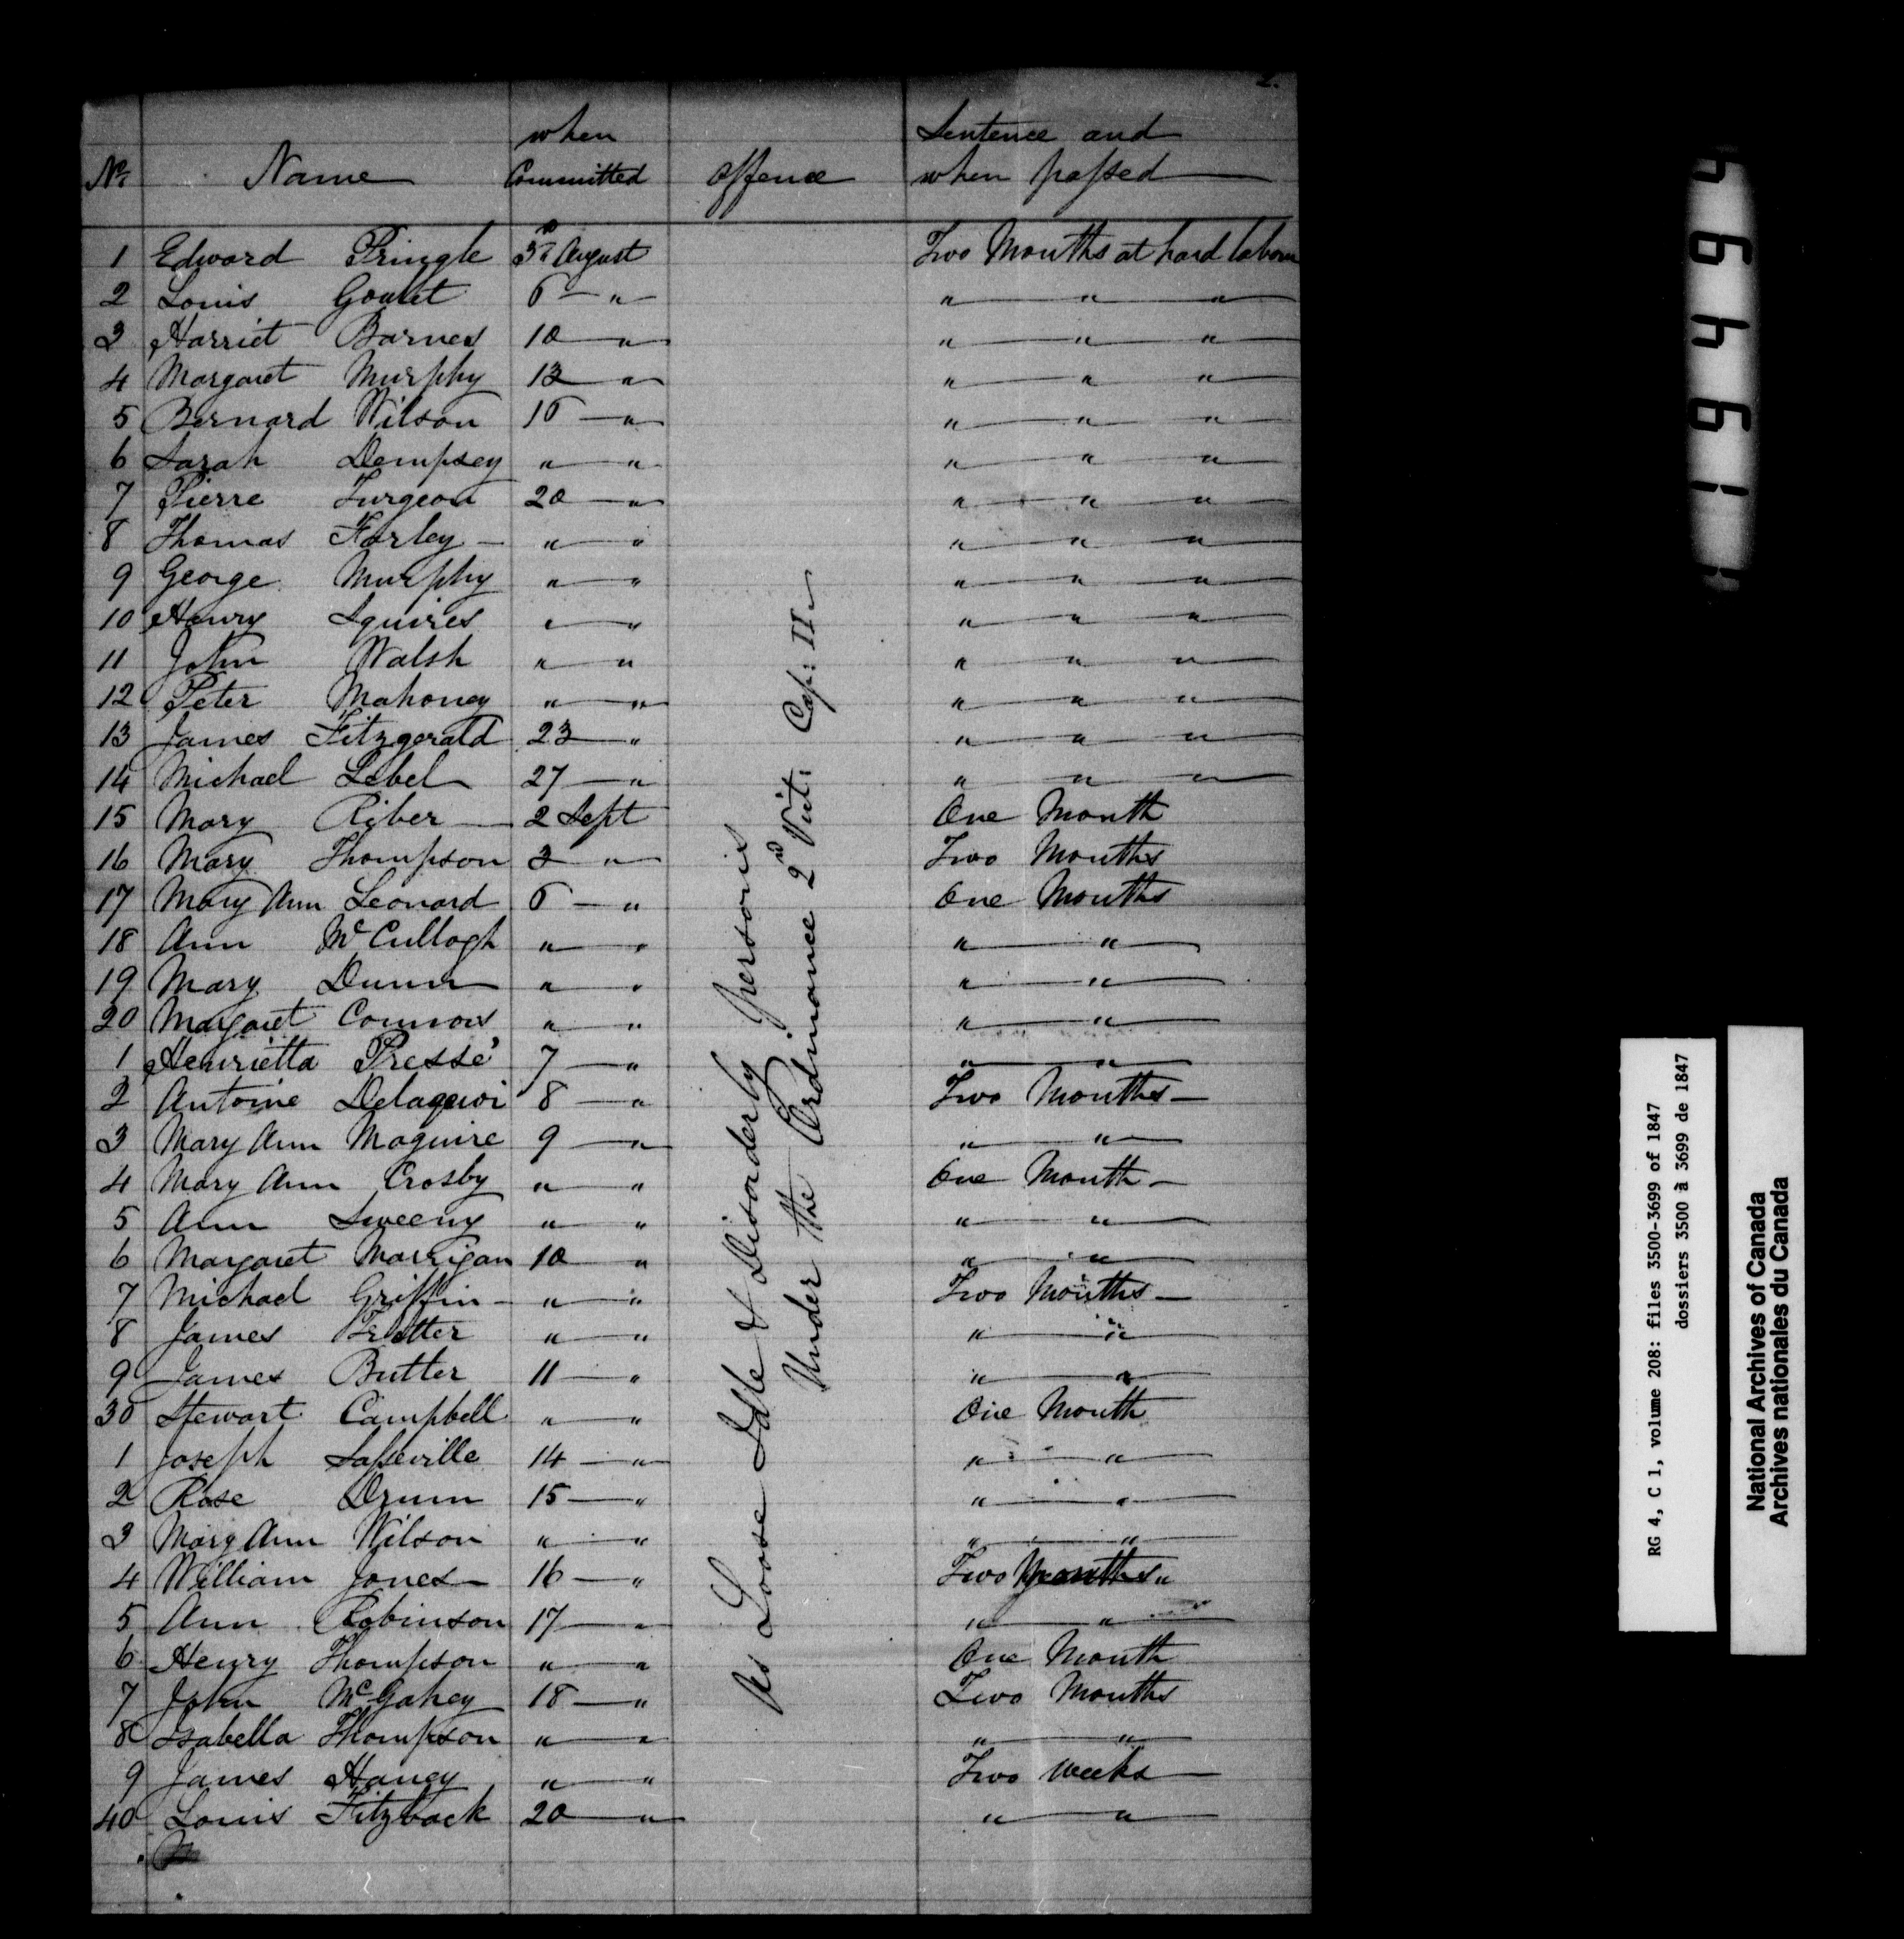 2.
No. Name when Committed offence Sentence and when passed
1 Edward Pringle 3d August Two Months at hard labour
2 Louis Goulet 6 — " " " "
3 Harriet Barnes 10 — " " " "
4 Margaret Murphy 13 — " " " "
5 Bernard Wilson 16 — " " " "
6 Sarah Dempsey " " " " "
7 Pierre Turgeon 20 — " " " "
8 Thomas Farley — " " " " "
9 George Murphy " " " " "
10 Henry Squires " " " " "
11 John Walsh " " " " "
12 Peter Mahoney " " " " "
13 James Fitzgerald 23 — " " " "
14 Michael Lebel 27 — " " " "
15 Mary Riber — 2 Sept One Month
16 Mary Thompson 3 — " Two Months
17 Mary Ann Leonard 6 — " One Months
18 Ann McCullogh " " " "
19 Mary Dunn " " " "
20 Margaret Connors " " " "
1 Henrietta Pressé 7 — " " "
2 Antoine 8 — " Two Months —
3 Mary Ann Maguire 9 — " " "
4 Mary Ann Crosby " " One Month —
5 Ann Sweeny " " " "
6 Margaret Marrigan 10 " " "
7 Michael Griffin — " " Two Months —
8 James " " " "
9 James Butler 11 — " " "
30 Stewart Campbell " " One Month
1 Joseph Lasseville 14 — " " "
2 Rose Drum 15 — " " "
3 Mary Ann Wilson " " " "
4 William Jones — 16 — " Two Months "
5 Ann Robinson 17 — " " "
6 Henry Thompson " " One Month
7 John McGahey 18 — " Two Months
8 Isabella Thompson " " " "
9 James Haney " " Two weeks —
40 Louis Fitzback 20 — " " "
As Loose Idle & Disorderly persons
Under the Ordinance 2d Vict: Cap: II
RG 4, C 1, volume 208: files 3500-3699 of 1847
dossiers 3500 à 3699 de 1847
National Archives of Canada
Archives nationales du Canada